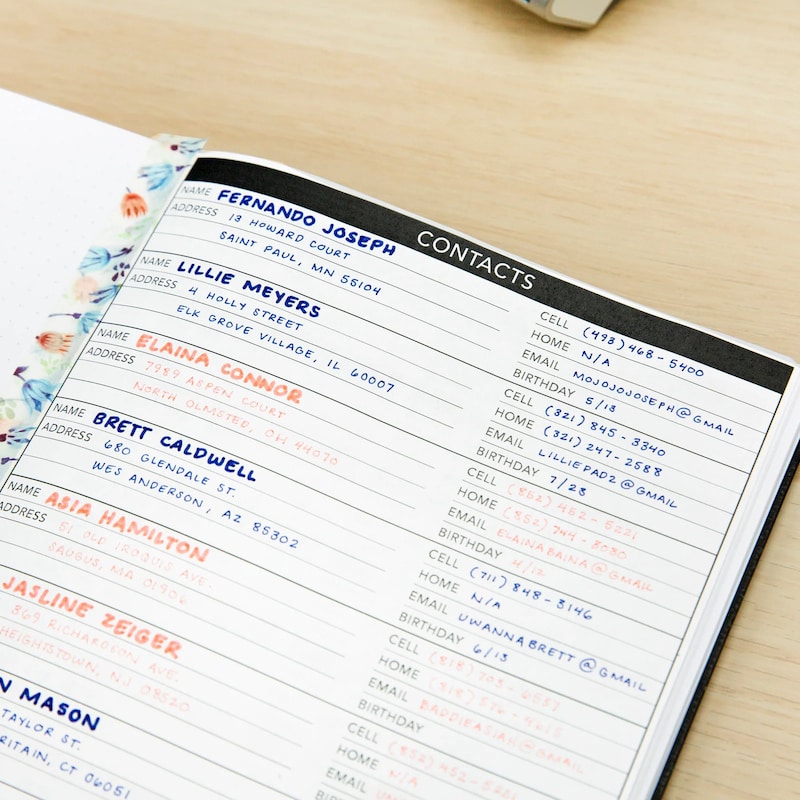 CONTACTS
NAME FERNANDO JOSEPH
ADDRESS 13 HOWARD COURT
SAINT PAUL, MN 55104
CELL (493) 468-5400
HOME N/A
EMAIL MOJOJOJOSEPH@GMAIL
BIRTHDAY 5/13
NAME LILLIE MEYERS
ADDRESS 4 HOLLY STREET
ELK GROVE VILLAGE, IL 60007
CELL (321) 845-3340
HOME (321) 247-2588
EMAIL LILLIEPAD2@GMAIL
BIRTHDAY 7/23
NAME ELAINA CONNOR
ADDRESS 7989 ASPEN COURT
NORTH OLMSTED, OH 44070
CELL (852) 452-5221
HOME (852) 744-8080
EMAIL ELAINABAINA@GMAIL
BIRTHDAY 4/12
NAME BRETT CALDWELL
ADDRESS 680 GLENDALE ST.
WES ANDERSON, AZ 85302
CELL (711) 848-3146
HOME N/A
EMAIL UWANNABRETT@GMAIL
BIRTHDAY 6/13
NAME ASIA HAMILTON
ADDRESS 51 OLD IROQUIS AVE.
SAUGUS, MA 01906
CELL (818)
HOME (818) 576-4615
EMAIL BADDIEASIAH@GMAIL
BIRTHDAY
JASLINE ZEIGER
369 RICHARDSON AVE.
HEIGHTSTOWN, NJ 08520
CELL (852) 452-5221
HOME N/A
EMAIL
N MASON
TAYLOR ST.
RITAIN, CT 06051